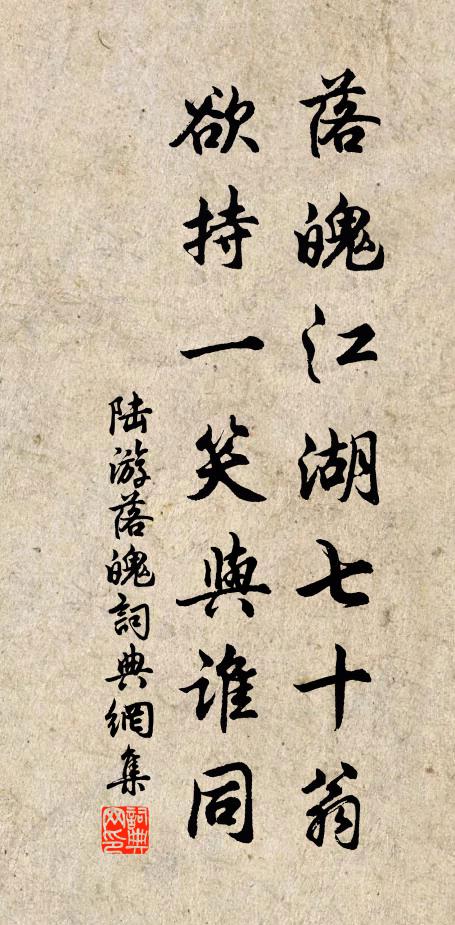 落魄江湖七十翁
欲持一笑與誰同
陆游落魄詞典網集
詞典网印